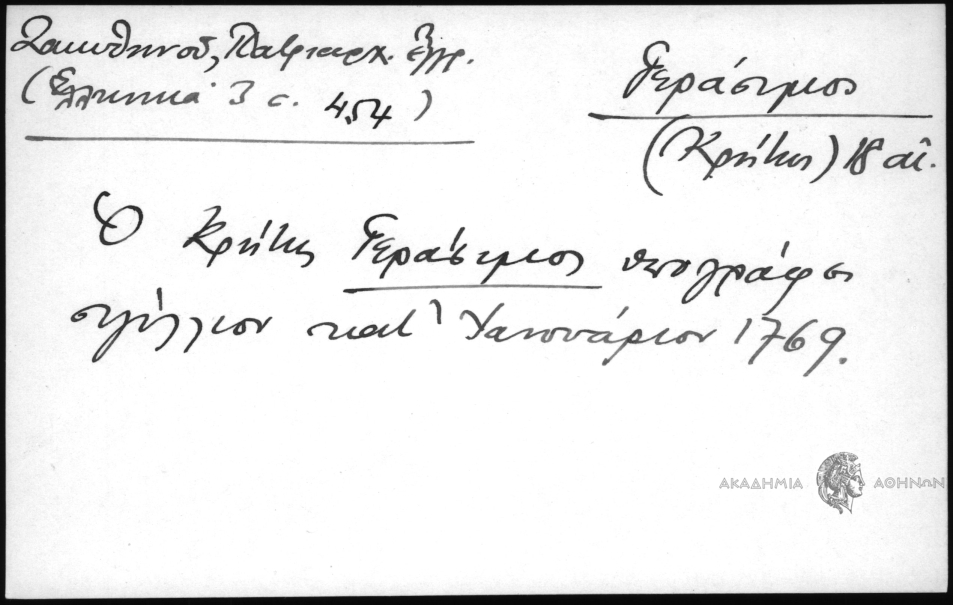 Ζακυθηνοῦ, Πατριαρχ. ἔγγρ.
(Ἑλληνικά 3 σ. 454)
Γεράσιμος
(Κρήτης) 18 αἰ.
Ὁ Κρήτης Γεράσιμος ὑπογράφει
σιγίλλιον κατ' Ἰανουάριον 1769.
ΑΚΑΔΗΜΙΑ ΑΘΗΝΩΝ